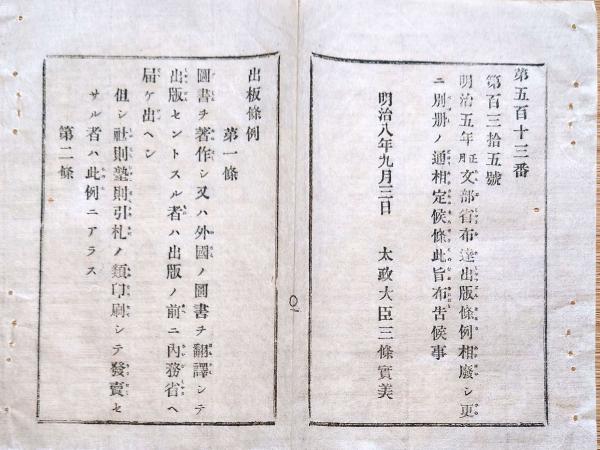 第五百十三番
第百三拾五號
明治五年正月文部省布達出版條例相廢シ更
ニ別册ノ通相定候條此旨布吿候事
明治八年九月三日　太政大臣三條實美
出板條例
第一條
圖書ヲ著作シ又ハ外國ノ圖書ヲ翻譯シテ
出版セントスル者ハ出版ノ前ニ內務省ヘ
屆ケ出ヘシ
但シ社則塾則引札ノ類印刷シテ發賣セ
サル者ハ此例ニアラス
第二條